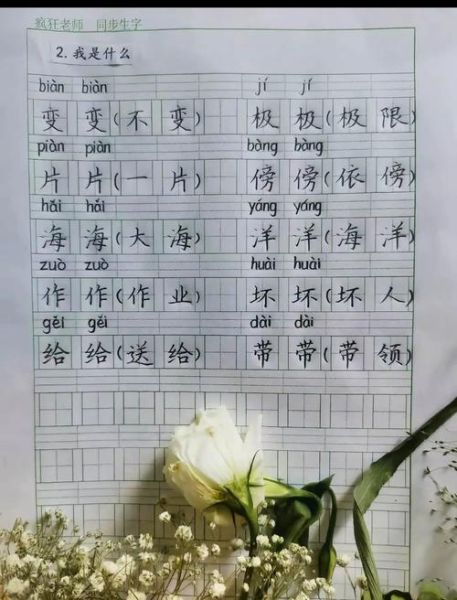 疯狂老师 同步生字
2.我是什么
biàn biàn jí jí
变 变(不 变) 极 极(极 限)
piàn piàn bàng bàng
片 片(一 片) 傍 傍(依 傍)
hǎi hǎi yáng yáng
海 海(大 海) 洋 洋(海 洋)
zuò zuò huài huài
作 作(作 业) 坏 坏(坏 人)
gěi gěi dài dài
给 给(送 给) 带 带(带 领)